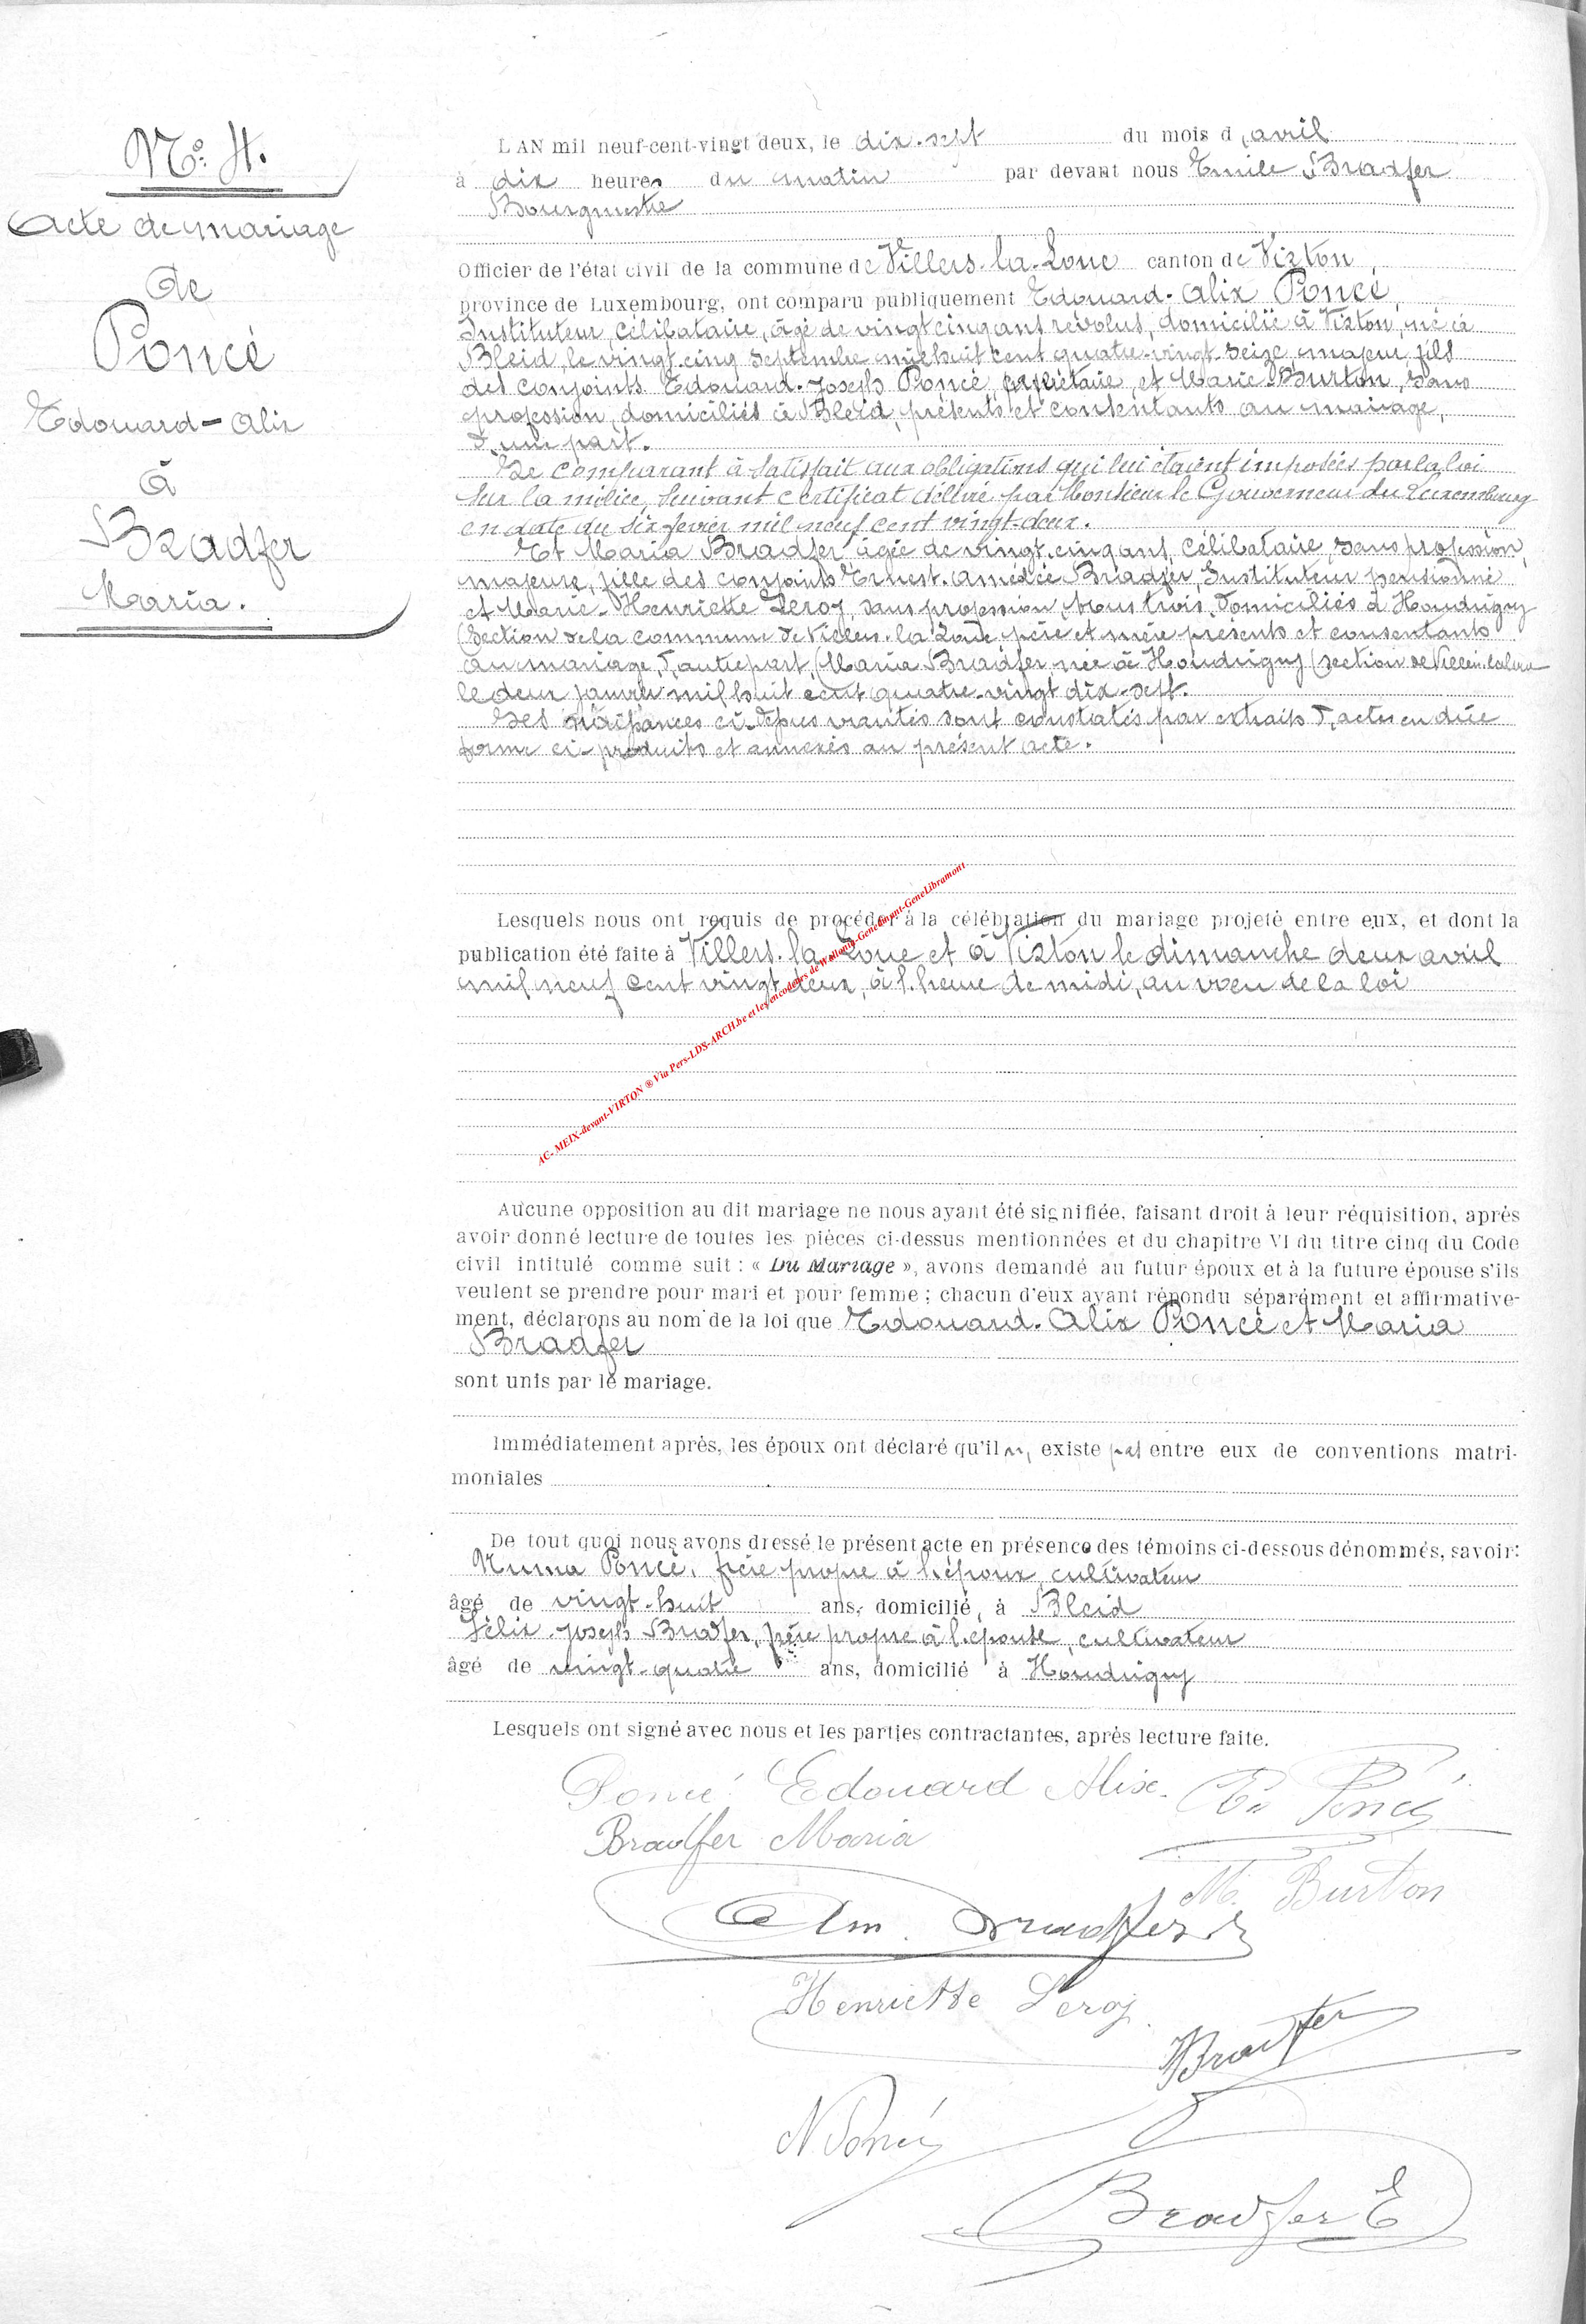 N° 4.
Acte de mariage
de
Poncé
Edouard-Alix
à
Bradfer
Maria.
L'AN mil neuf-cent-vingt deux, le dix-sept du mois d'avril
à dix heures du matin par devant nous Emile Bradfer
Bourgmestre
Officier de l'état civil de la commune de Villers-la-Loue canton de Virton,
province de Luxembourg, ont comparu publiquement Edouard-Alix Poncé,
Instituteur, célibataire, âgé de vingt cinq ans révolus, domicilié à Virton, né à
Bleid, le vingt-cinq septembre mil huit cent quatre-vingt-seize, majeur, fils
des conjoints Edouard-Joseph Poncé, propriétaire, et Marie Burton, sans
profession, domiciliés à Bleid, présents et consentants au mariage,
d'une part.
Le comparant à satisfait aux obligations qui lui étaient imposées par la loi
sur la milice, suivant certificat délivré par Monsieur le Gouverneur du Luxembourg
en date du six février mil neuf cent vingt-deux.
Et Maria Bradfer âgée de vingt-cinq ans, célibataire, sans profession,
majeure, fille des conjoints Ernest-Amédée Bradfer, Instituteur pensionné
et Marie-Henriette Leroy, sans profession, tous trois domiciliés à Houdrigny
(section de la commune de Villers-la-Loue père et mère présents et consentants
au mariage, d'autre part, (Maria Bradfer née à Houdrigny (section de Villers-la-Loue
le deux janvier mil huit cent quatre-vingt dix-sept.
Les naissances ci-dessus sont constatés par extraits d'actes en due
forme ci-produits et annexés au présent acte.
Lesquels nous ont requis de procéder à la célébration du mariage projeté entre eux, et dont la
publication été faite à Villers-la-Loue et à Virton le dimanche deux avril
mil neuf cent vingt-deux, à l'heure de midi, au vœu de la loi
AC- MEIX-devant-VIRTON ® Via Pers-LDS-ARCH.be et les encodeurs de Wallonia-Genedinant-GeneLibramont
Aucune opposition au dit mariage ne nous ayant été signifiée, faisant droit à leur réquisition, après
avoir donné lecture de toutes les pièces ci-dessus mentionnées et du chapitre VI du titre cinq du Code
civil intitulé comme suit : « Du Mariage », avons demandé au futur époux et à la future épouse s'ils
veulent se prendre pour mari et pour femme ; chacun d'eux ayant répondu séparément et affirmative-
ment, déclarons au nom de la loi que Edouard-Alix Poncé et Maria
Bradfer
sont unis par le mariage.
Immédiatement après, les époux ont déclaré qu'il n' existe pas entre eux de conventions matri-
moniales
De tout quoi nous avons dressé le présent acte en présence des témoins ci-dessous dénommés, savoir:
Numa Poncé, frère propre à l'époux, cultivateur
âgé de vingt-huit ans, domicilié, à Bleid
Félix-Joseph Bradfer, frère propre à l'épouse, cultivateur
âgé de vingt-quatre ans, domicilié à Houdrigny
Lesquels ont signé avec nous et les parties contractantes, après lecture faite.
Poncé Edouard Alix. Ed Poncé
Bradfer Maria
M. Burton
Am. Bradfer
Henriette Leroy.
Bradfer
N Poncé
Bradfer E